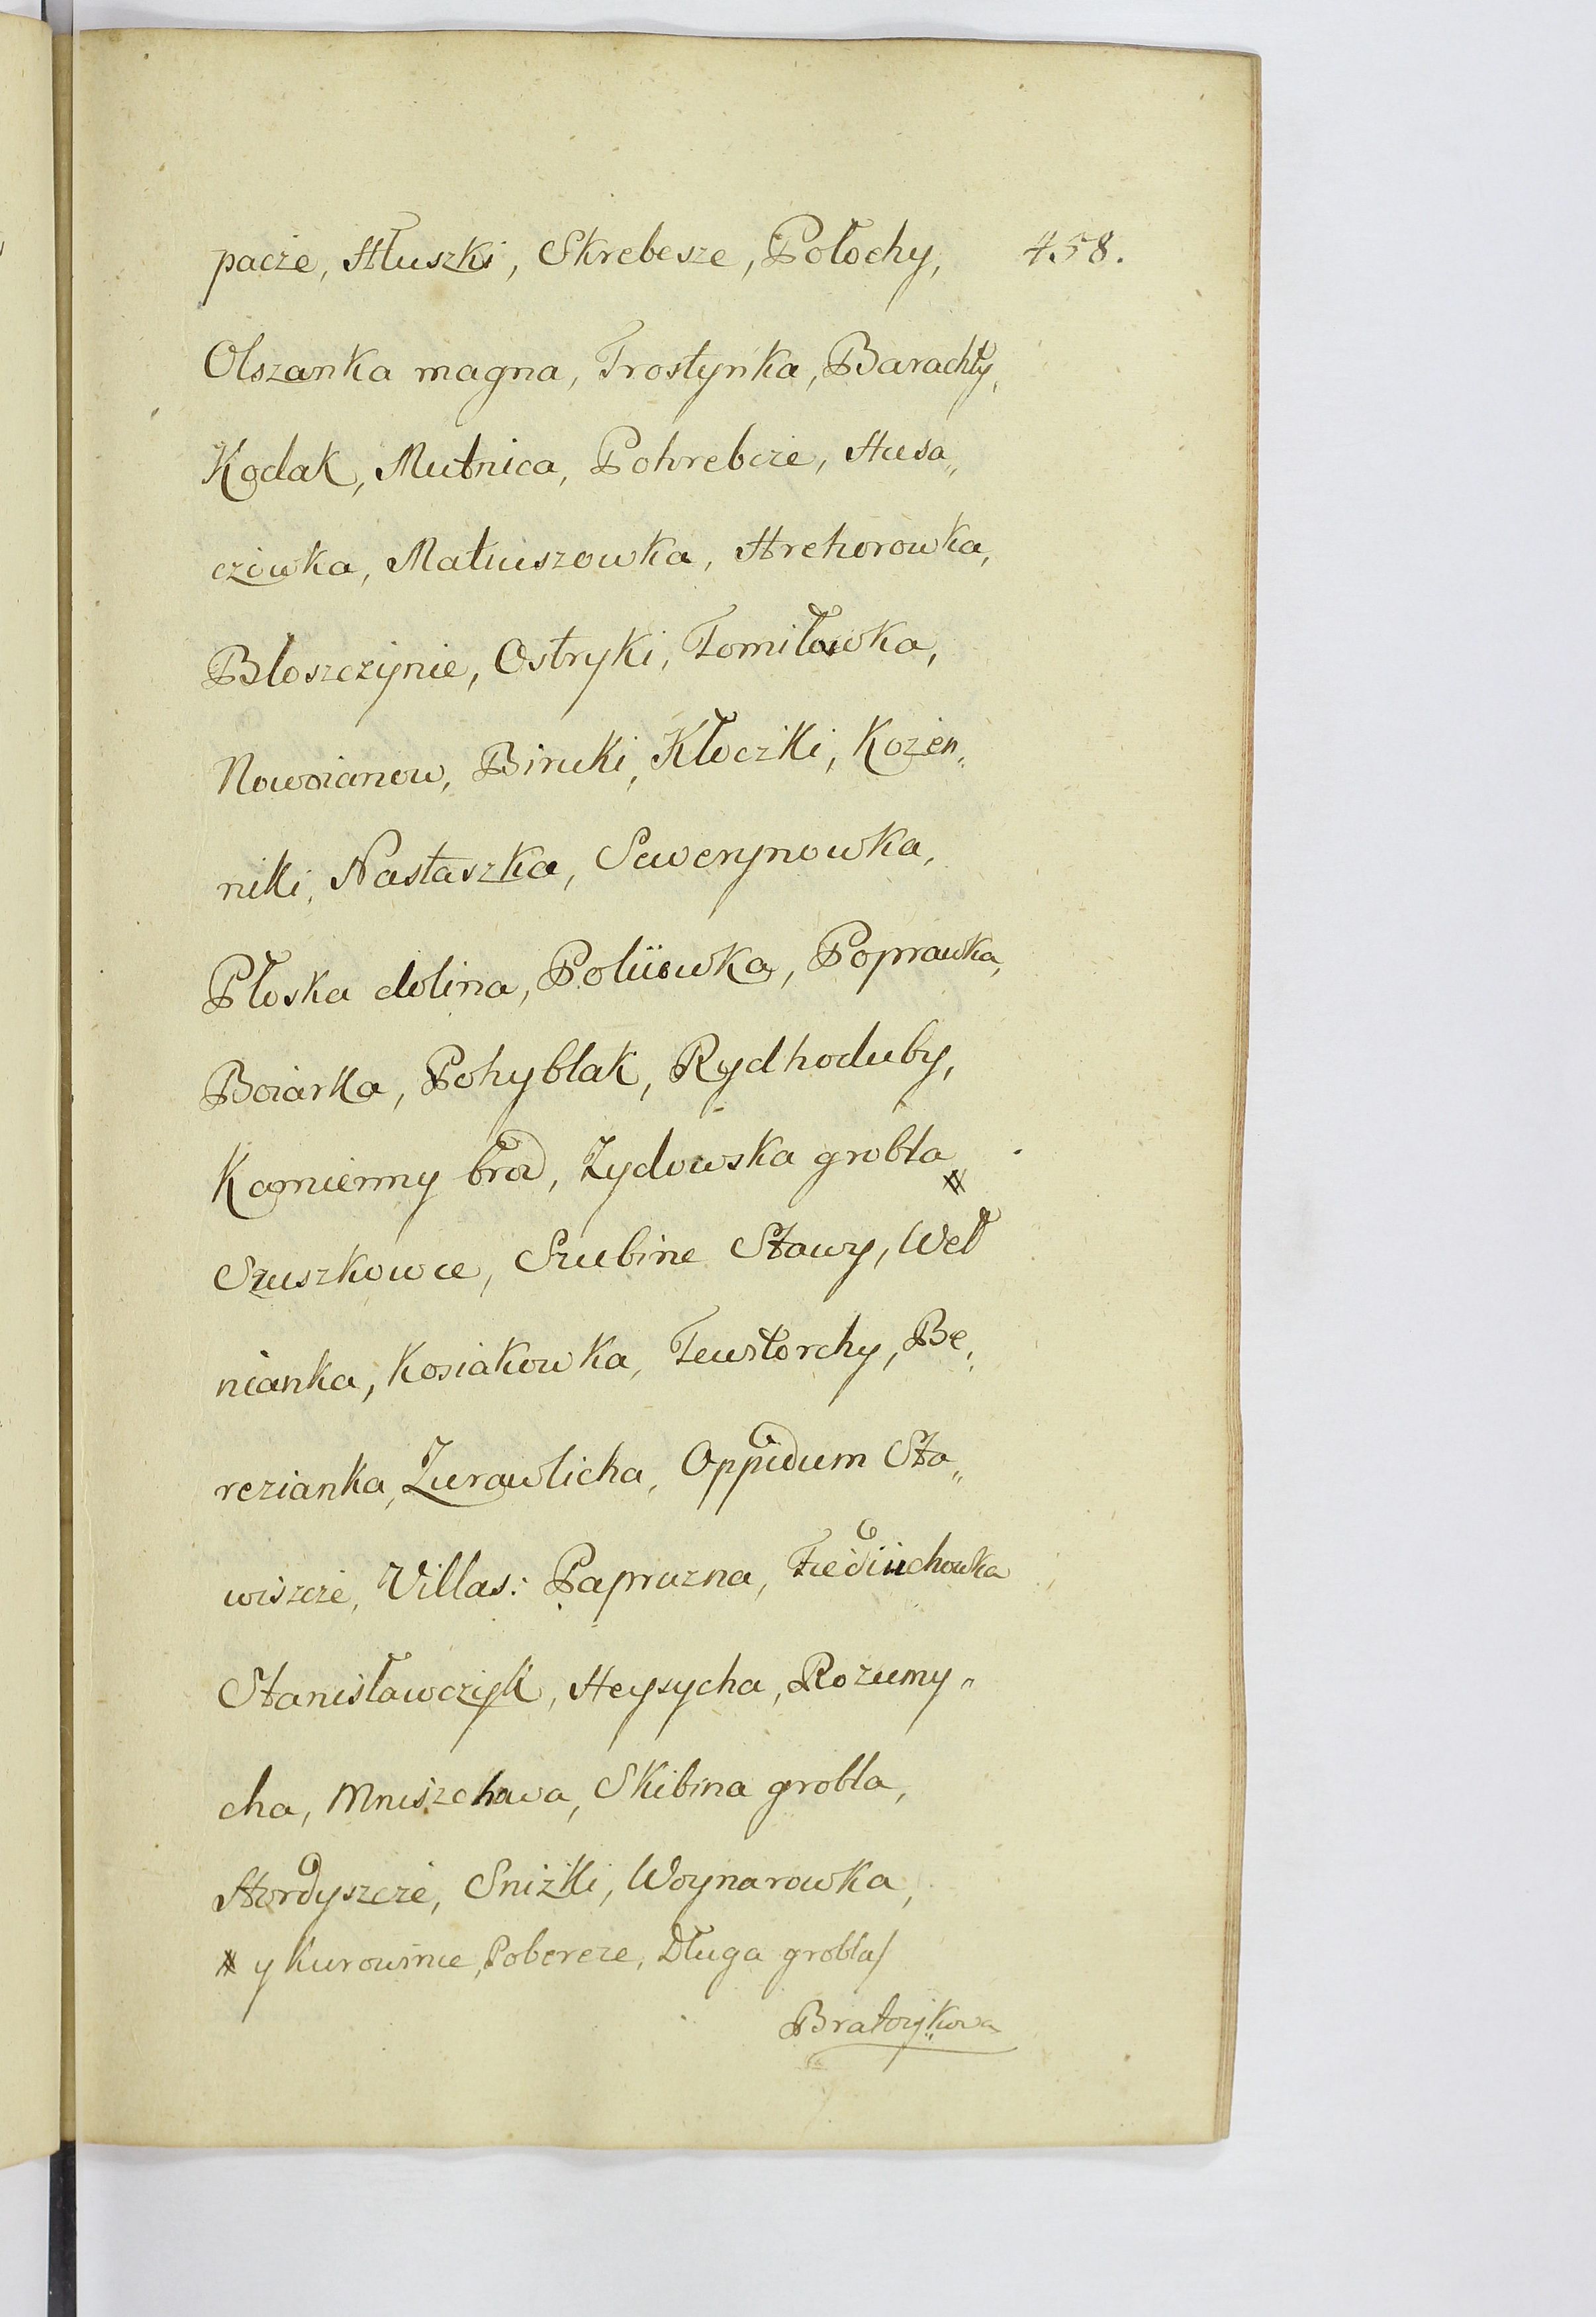 pacze, Hłuszki, Skrebesze, Połochy, 458.
Olszanka magna, Trostynka, Barachty,
Kodak, Mutnica, Pohrebcze, Husa„
czowka, Matiuszowka, Hrehorowka,
Błoszczynie, Ostryki, Tomiłowka,
Nowosianow, Biruki, Kłoczki, Kożen„
niki, Nastaszka, Sewerynowka,
Płoska dolina, Poliiowka, Poprawka,
Boiarka, Pohyblak, Rydhoduby,
Kamienny brod, Zydowska grobla #
Szuszkowce, Szubine Stawy, Wel
nianka, Kosiakowka, Teustorchy, Be„
rezianka, Zurawlicha, Oppidum Sta„
wiszcze, Villas: Papruzna, Fiediuchowka
Stanisławczyk, Heysycha, Rozumy„
cha, Mniszchowa, Skibina grobla,
Hordyszcze, Sniżki, Woynarowka,
# y Kurowince, Pobereze, Długa grobla/
Bratoiykowa